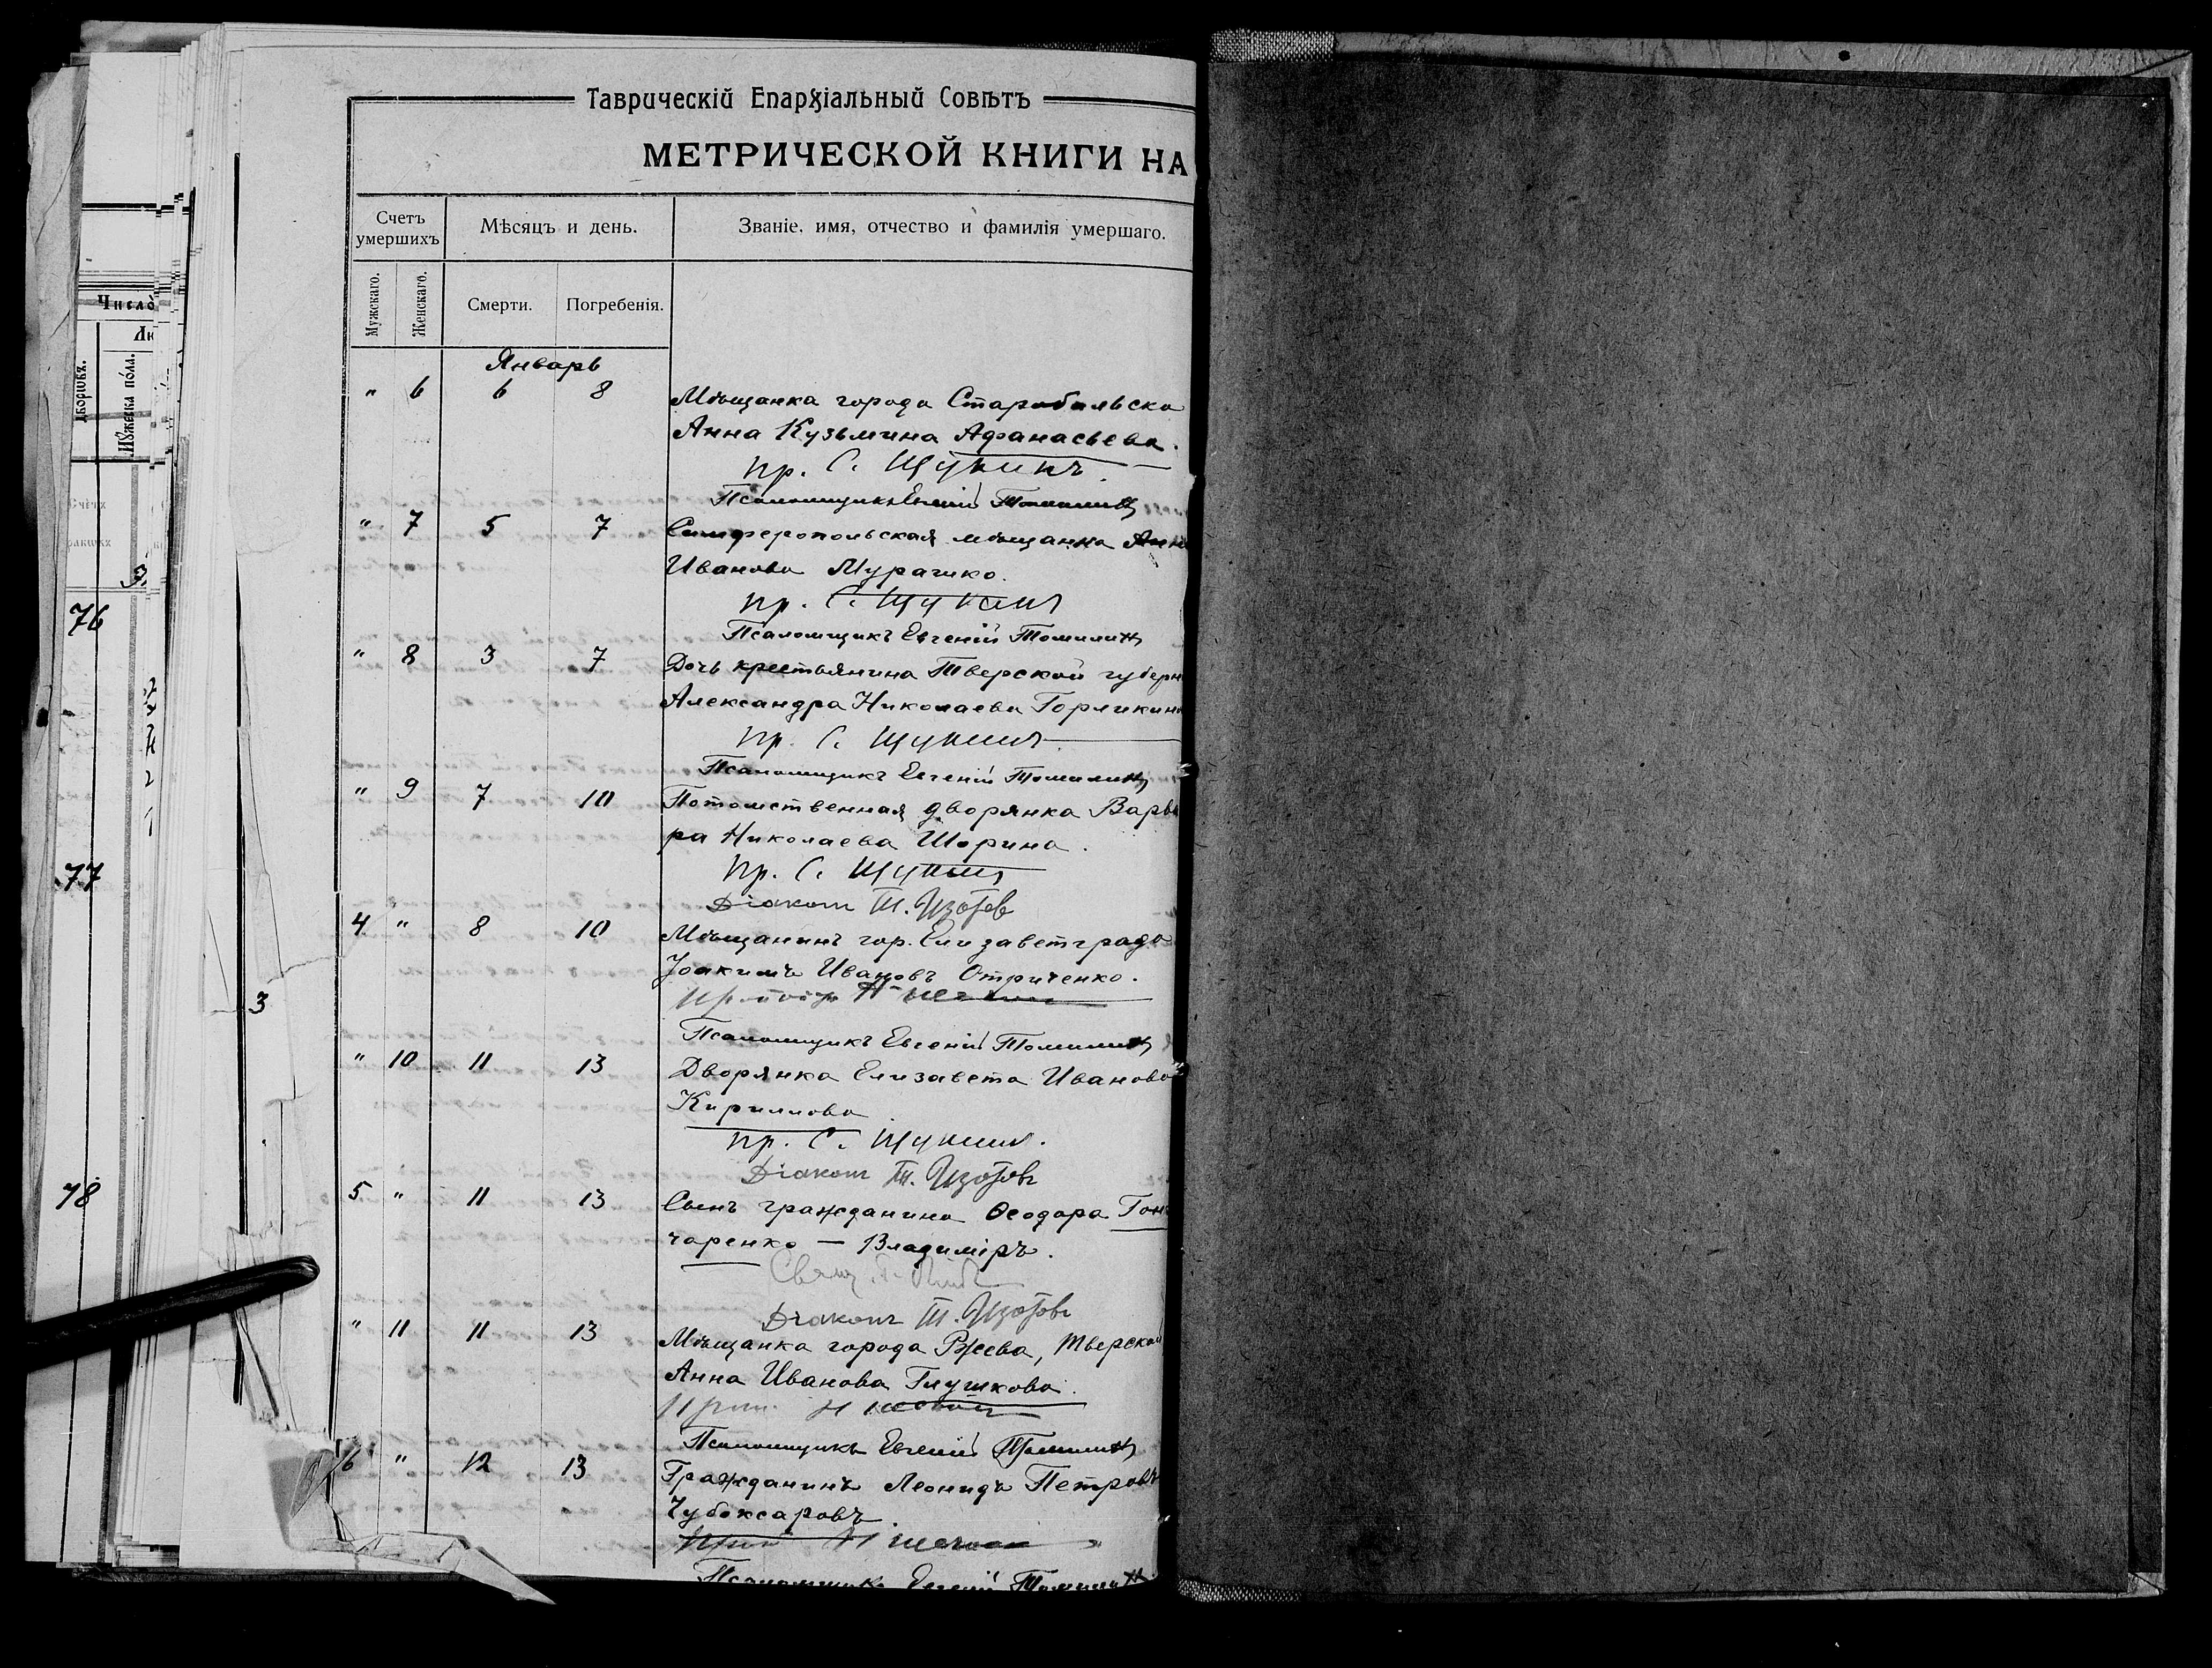 Таврическій Епархіальный Совѣтъ
МЕТРИЧЕСКОЙ КНИГИ НА
Счетъ умершихъ
Мѣсяцъ и день.
Званіе, имя, отчество и фамилія умершаго.
Мужскаго.
Женскаго.
Смерти.
Погребенія.
Январь
" 6 6 8 Мѣщанка города Старобѣльска
Анна Кузьмина Афанасьева.
пр. С. Щукинъ
Псаломщикъ Евгеній Томилинъ
" 7 5 7 Симферопольская мѣщанка Анна
Иванова Мурачко.
пр. С. Щукинъ
Псаломщикъ Евгеній Томилинъ
" 8 3 7 Дочь крестьянина Тверской губерн
Александра Николаева Горячкина
пр. С. Щукинъ
Псаломщикъ Евгеній Томилинъ
" 9 7 10 Потомственная дворянка Варва
ра Николаева Шорина.
пр. С. Щукинъ
Діаконъ Т. Изотов
4 " 8 10 Мѣщанинъ гор. Елизаветграда
Іоакимъ Ивановъ Отриченко.
Псаломщикъ Евгеній Томилинъ
" 10 11 13 Дворянка Елизавета Иванова
Кириллова
пр. С. Щукинъ.
Діаконъ Т. Изотовъ
5 " 11 13 Сынъ гражданина Ѳеодора Гон
чаренко — Владиміръ.
Свящ.
Діаконъ Т. Изотовъ
" 11 11 13 Мѣщанка города Ржева, Тверской
Анна Иванова Глушкова.
Псаломщикъ Евгеній Томилинъ
6 " 12 13 Гражданинъ Леонидъ Петровъ
Чубоксаровъ.
Псаломщикъ Евгеній Томилинъ
Число
Мужеска пола.
76
77
78
3